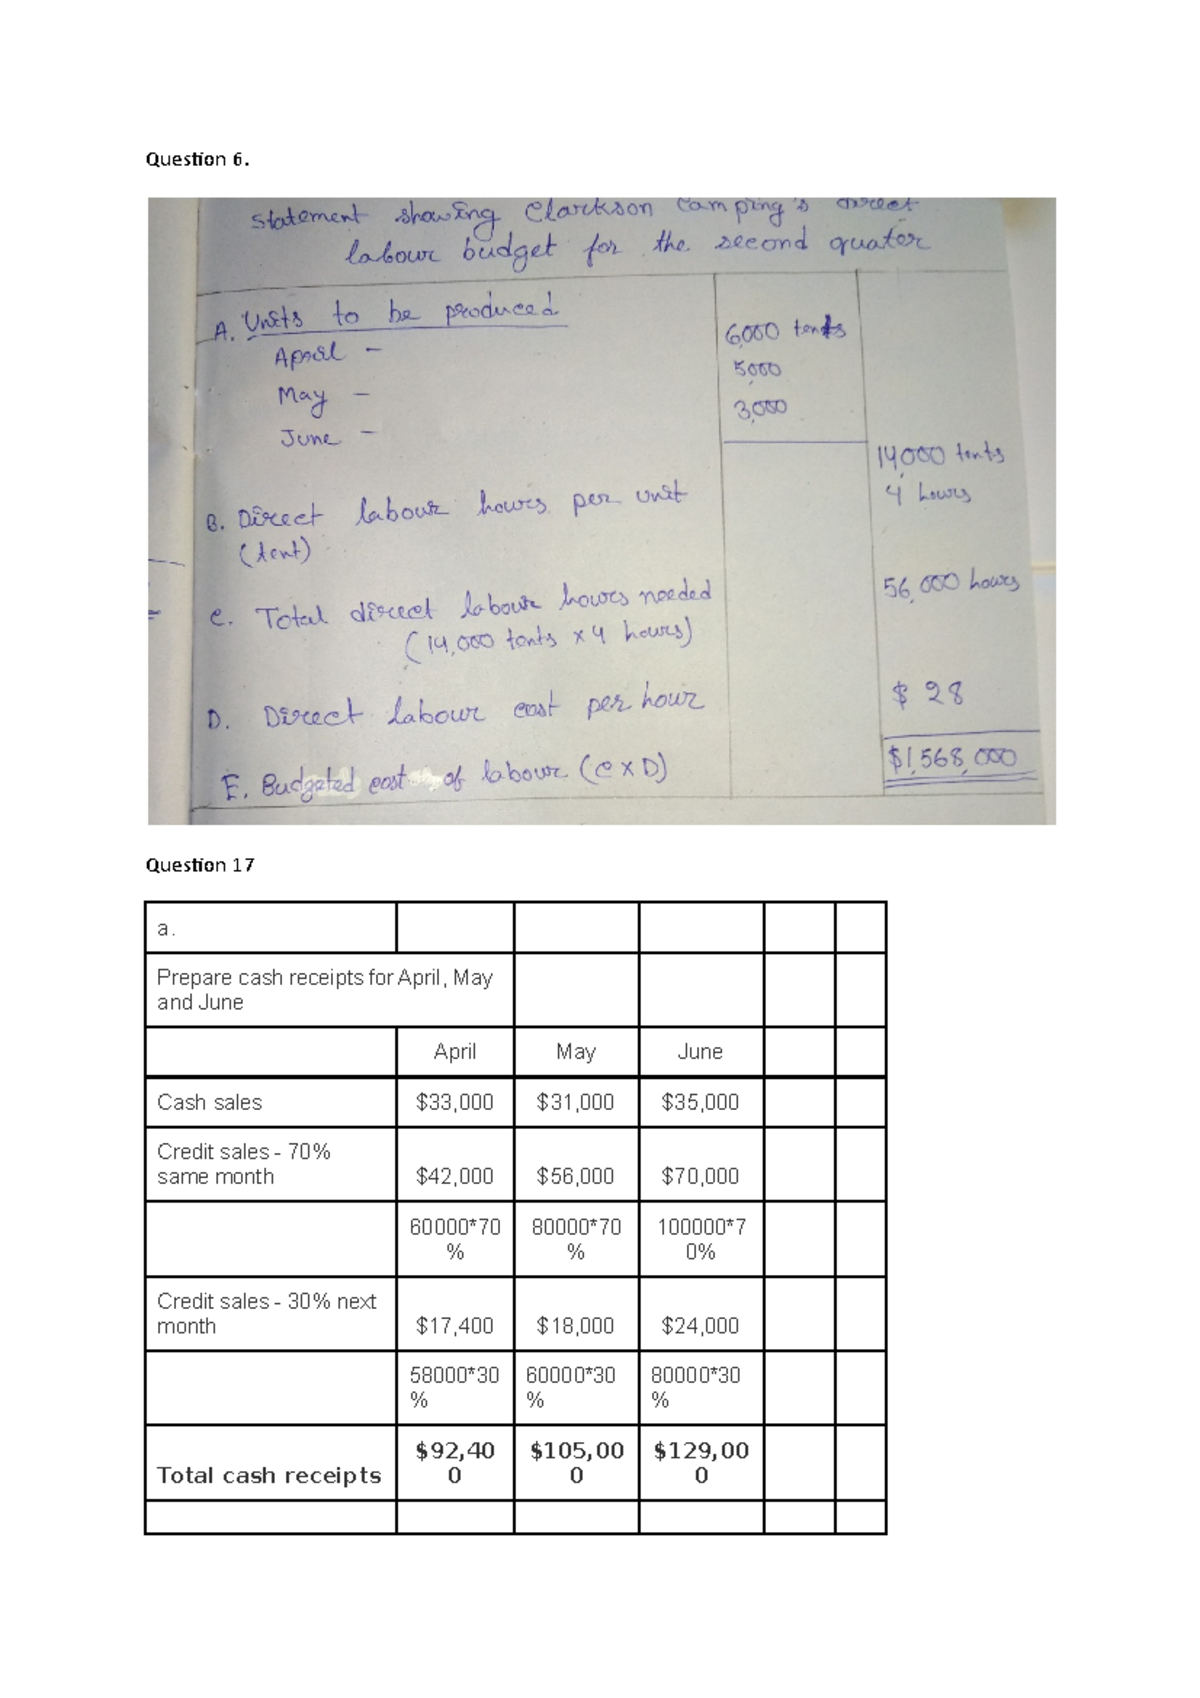 Question 6.
Statement showing Clarkson Camping's direct
labour budget for the second quater
A. Units to be produced
April – 6,000 tents
May – 5,000
June – 3,000
14,000 tents
B. Direct labour hours per unit 4 hours
(tent)
C. Total direct labour hours needed 56,000 hours
(14,000 tents x 4 hours)
D. Direct labour cost per hour $ 28
E. Budgeted cost of labour (C x D) $1,568,000
Question 17
a.
Prepare cash receipts for April, May
and June
April May June
Cash sales $33,000 $31,000 $35,000
Credit sales - 70%
same month $42,000 $56,000 $70,000
60000*70 80000*70 100000*7
% % 0%
Credit sales - 30% next
month $17,400 $18,000 $24,000
58000*30 60000*30 80000*30
% % %
$92,40 $105,00 $129,00
Total cash receipts 0 0 0